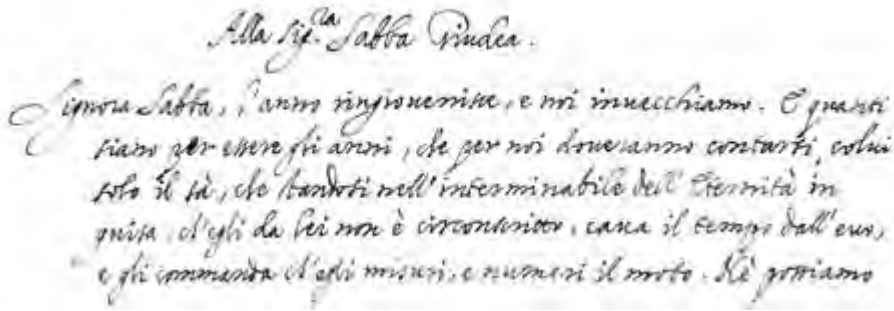 Alla Sig.ra Sabba Giudea.
Signora Sabba, l'anno ringiouenisce, e noi inuecchiamo. E quanti
siano per essere gli anni, che per noi doueranno contarsi, colui
solo il sà, che standosi nell'interminabile dell'Eternità in
guisa, ch'egli da lei non è circonscritto, caua il tempo dall'euo,
e gli commanda ch'egli misuri, e numeri il moto. Nè possiamo